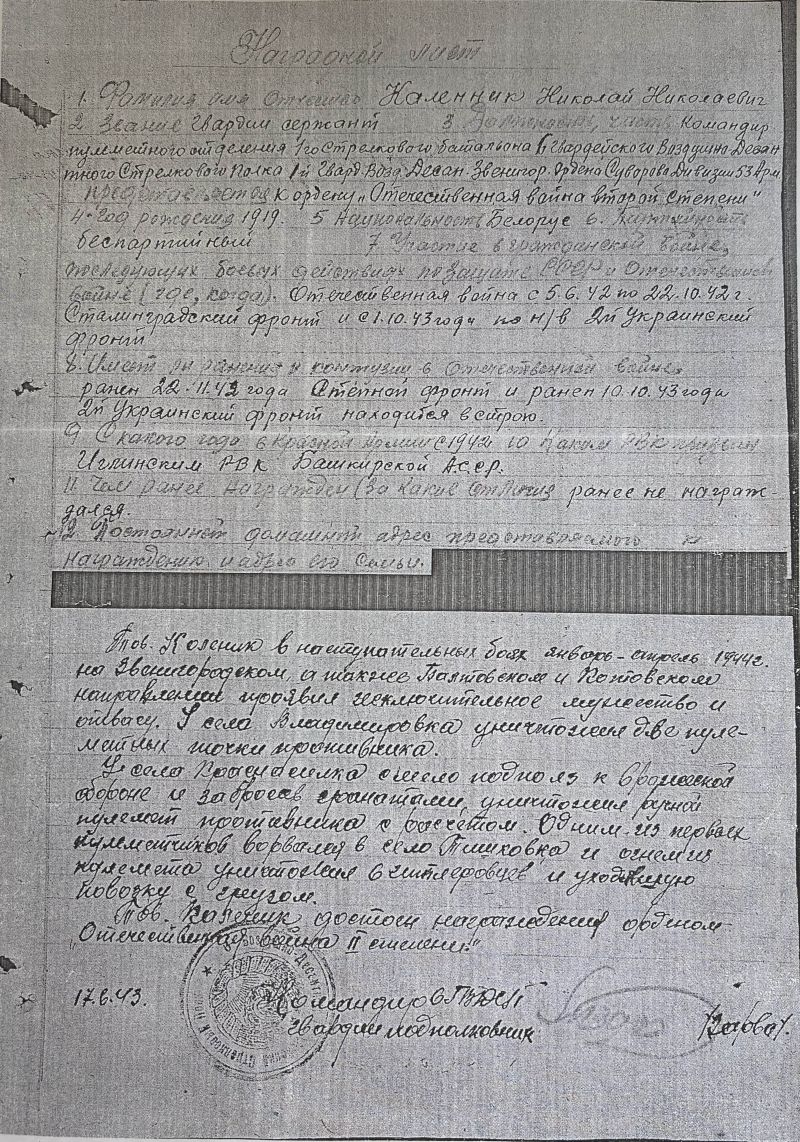 Наградной лист
1. Фамилия имя Отчество Каленник Николай Николаевич
2 Звание Гвардии сержант 3 Должность, часть Командир
пулеметного отделения 1го Стрелкового батальона 6 Гвардейского Воздушно-Десан
тного Стрелкового Полка 1й Гвард. Возд. Десан. Звенигор. Ордена Суворова Дивизии 53 Арм.
представляется к ордену „Отечественная война второй степени"
4. Год рождения 1919. 5 Национальность Белорус 6. Партийность
беспартийный 7 Участие в гражданской войне,
последующих боевых действиях по защите СССР и Отечественной
войне (где, когда). Отечественная война с 5.6.42 по 22.10.42 г.
Сталинградский фронт и с 1.10.43 года по н/в 2й Украинский
фронт
8. Имеет ли ранения и контузии в Отечественной войне.
ранен 22.11.42 года Степной фронт и ранен 10.10.43 года
2й Украинский фронт находится в строю.
9 С какого года в Красной Армии с 1942 10 Каким РВК призван
Иглинским РВК Башкирской АССР.
11. Чем ранее награжден (за какие отличия ранее не награж-
дался.
12 Постоянный домашний адрес представляемого к
награждению и адрес его семьи.
Тов. Каленик в наступательных боях январь-апрель 1944 г.
на Звенигородском, а также Балтовском и Котовском
направлении проявил исключительное мужество и
отвагу. У села Владимировка уничтожил две пуле-
метных точки противника.
У села Краснаселка смело подполз к вражеской
обороне и забросав гранатами, уничтожил ручной
пулемет противника с расчетом. Одним из первых
пулеметчиков ворвался в село Пишковка и огнем из
пулемета уничтожил 6 гитлеровцев и уходившую
повозку с грузом.
Тов. Каленик достоин награждения орденом
„Отечественная война II степени."
17.6.43. Командир 6 ГВДСП
Гвардии подполковник /Зарва/.